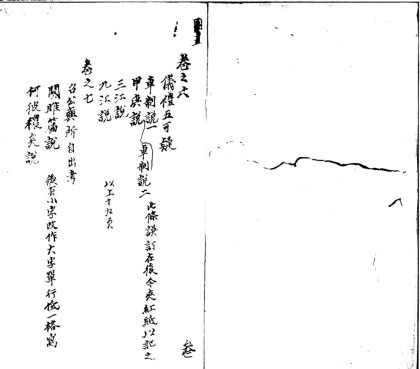 卷之六
儀禮五可疑
車制說一 車制說二 此條誤訂在後今夾紅紙以記之
甲庚說
三江說
九江說 以上十九頁
卷之七
召公興所自出考
關雎篇說 後有小字改作大字單行低一格寫
何彼穠矣說